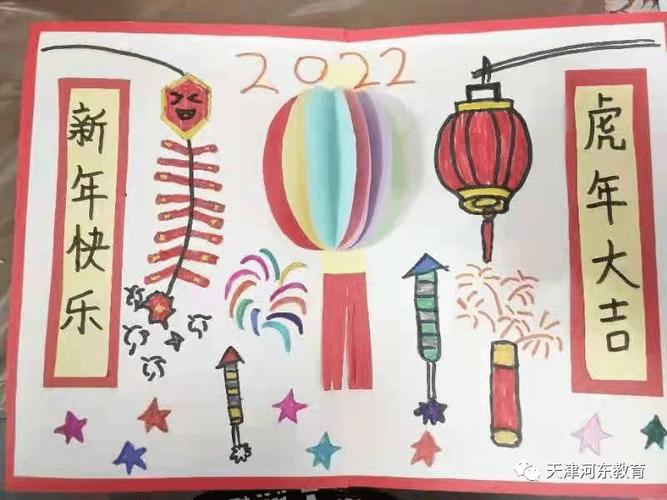 2022
新年快乐
虎年大吉
天津河东教育